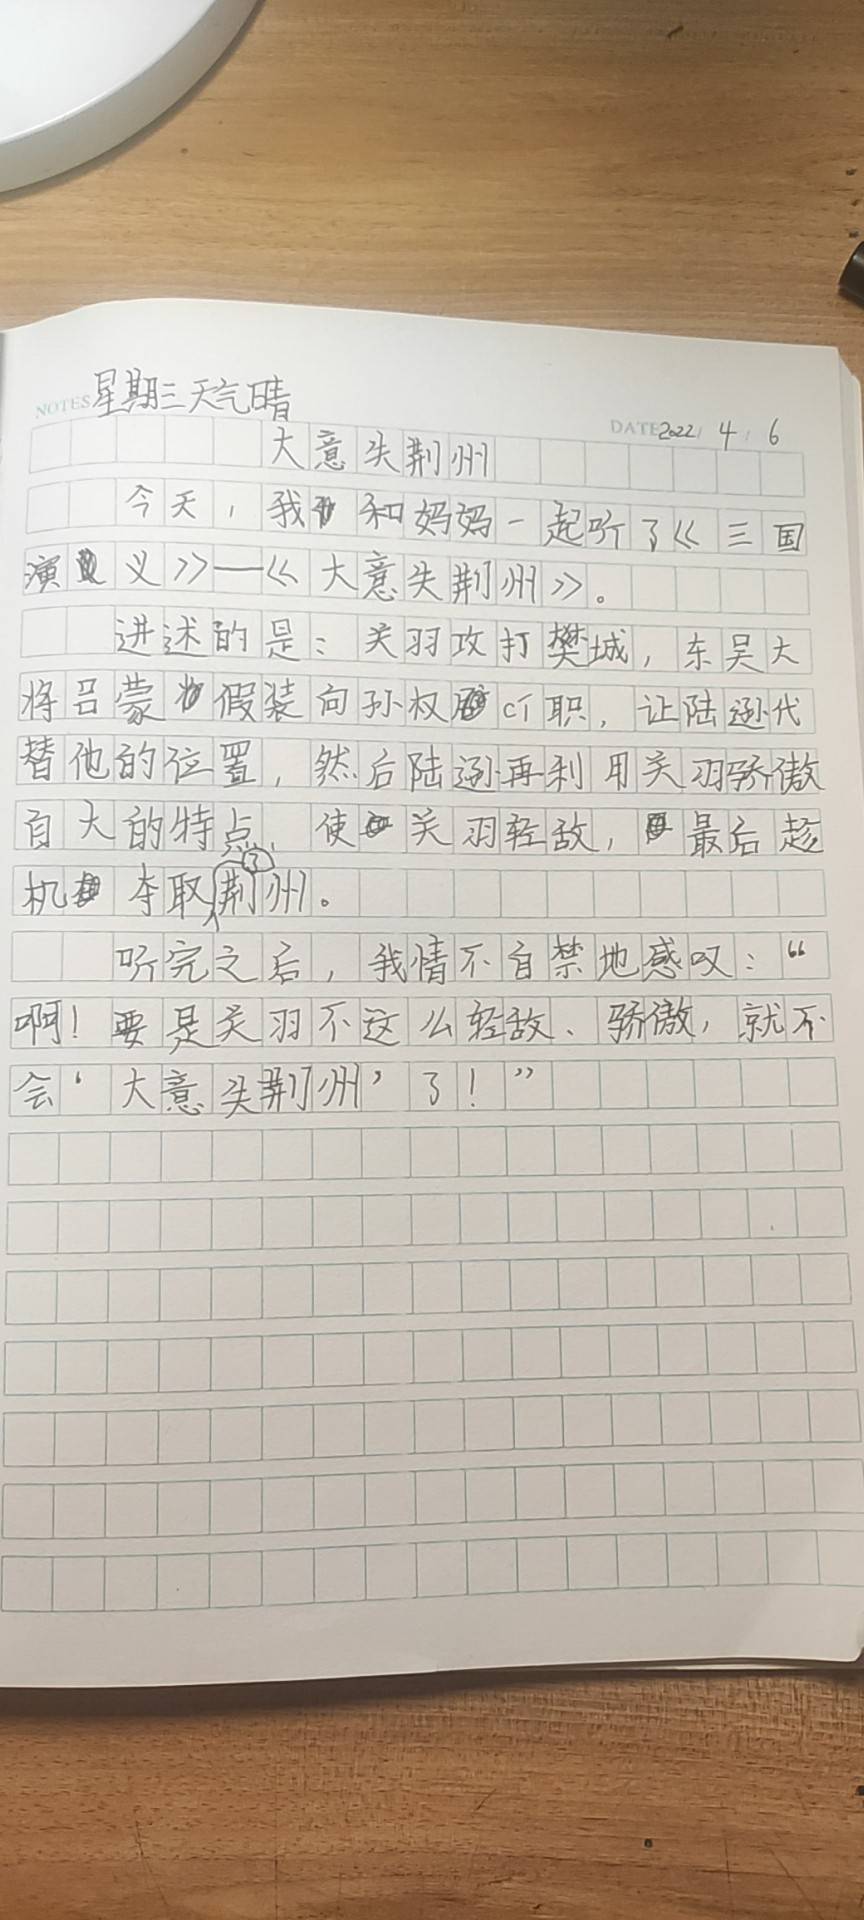 NOTES 星期三天气晴
DATE 2022/4/6
大意失荆州
今天，我和妈妈一起听了《三国
演义》—《大意失荆州》。
进述的是：关羽攻打樊城，东吴大
将吕蒙假装向孙权辞职，让陆逊代
替他的位置，然后陆逊再利用关羽骄傲
自大的特点，使关羽轻敌，最后趁
机夺取了荆州。
听完之后，我情不自禁地感叹：“
啊！要是关羽不这么轻敌、骄傲，就不
会‘大意失荆州’了！”